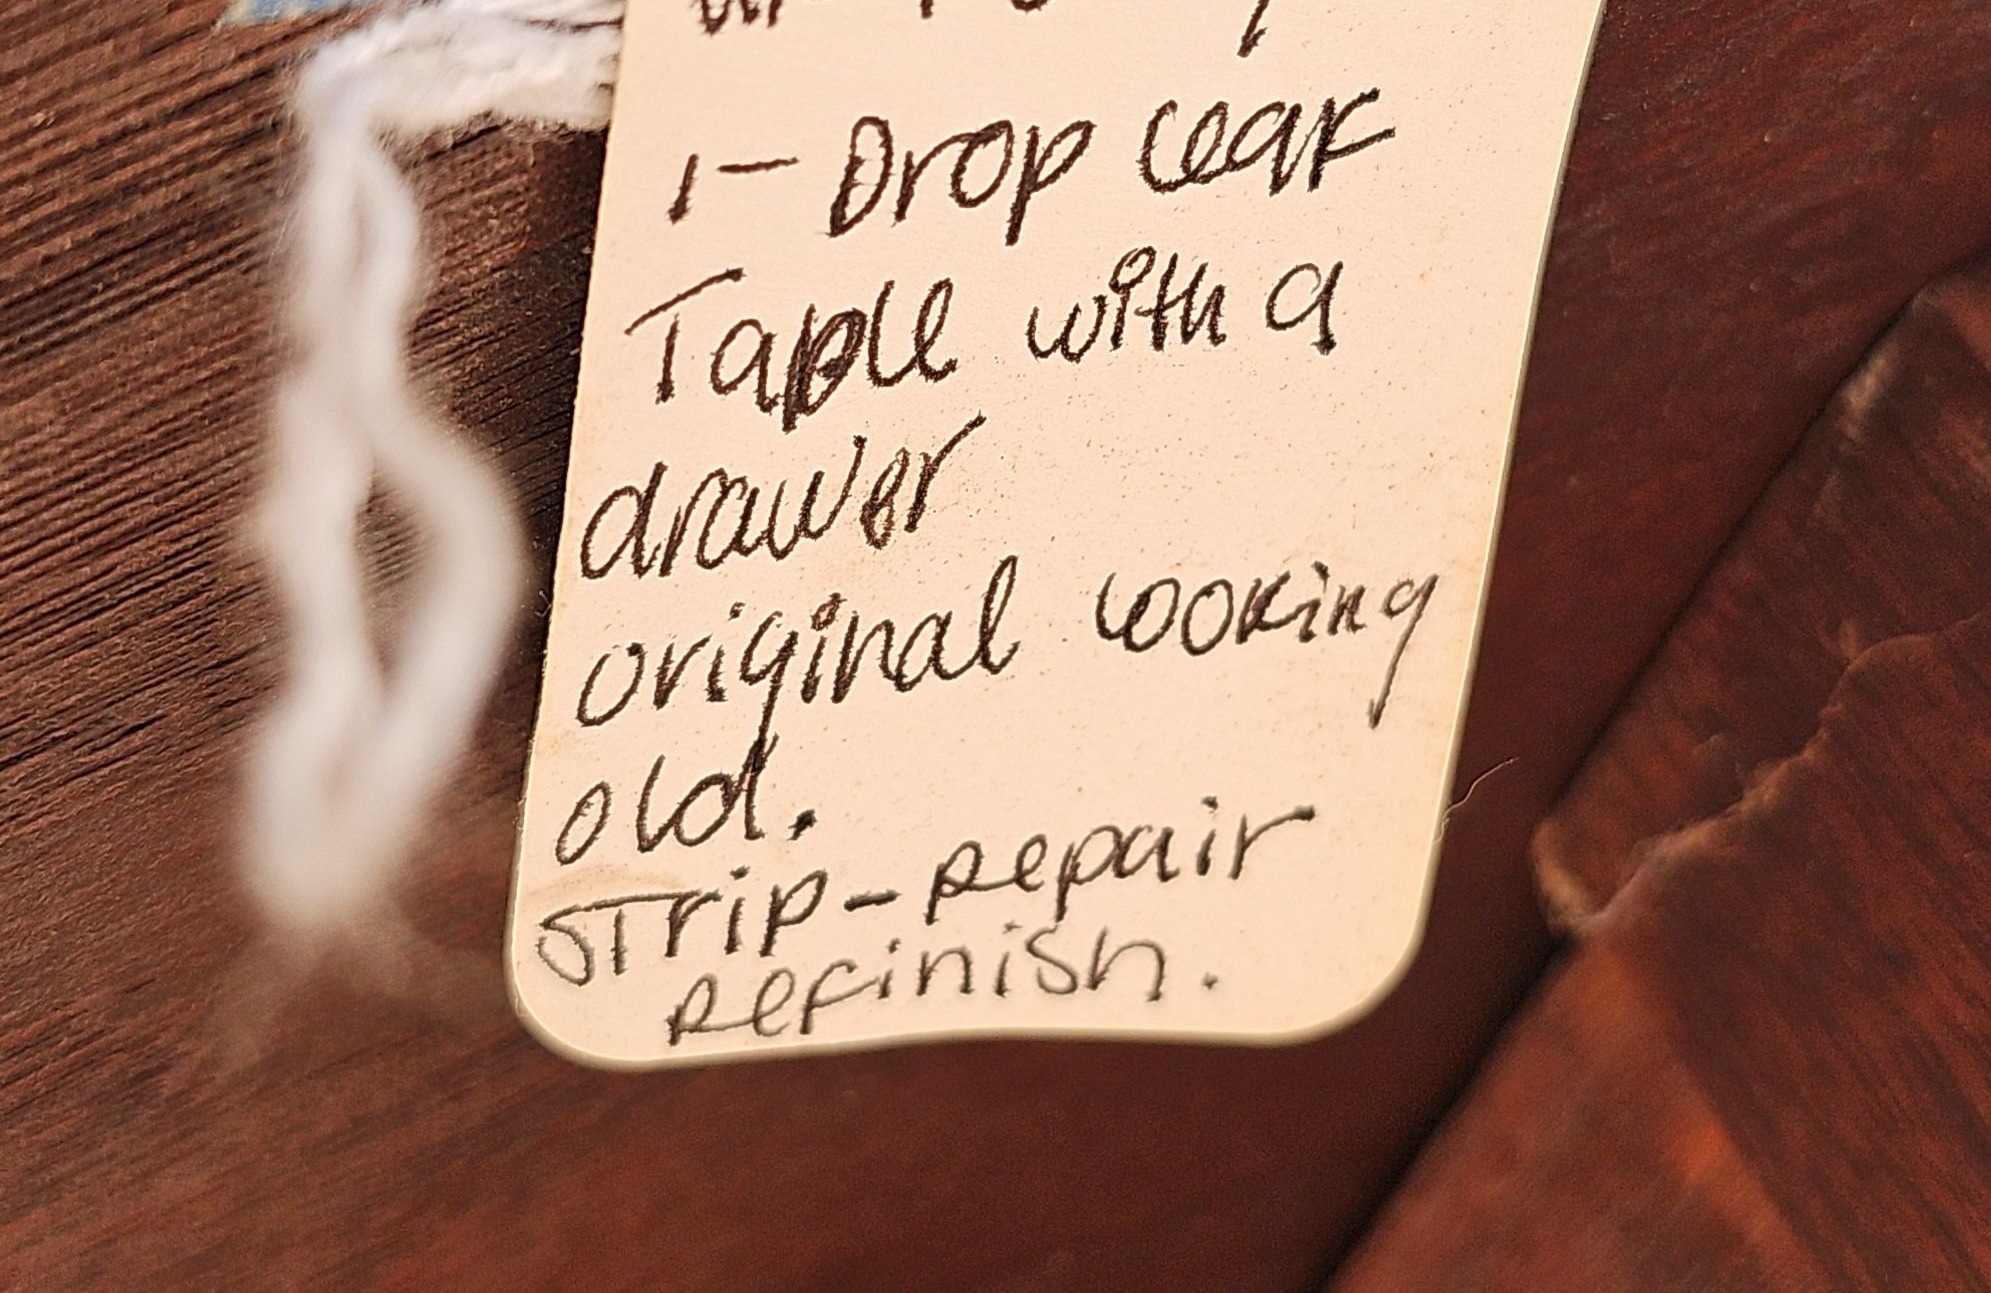 1- Drop Leaf
Table with a
drawer
original looking
old.
Strip-Repair
Refinish.